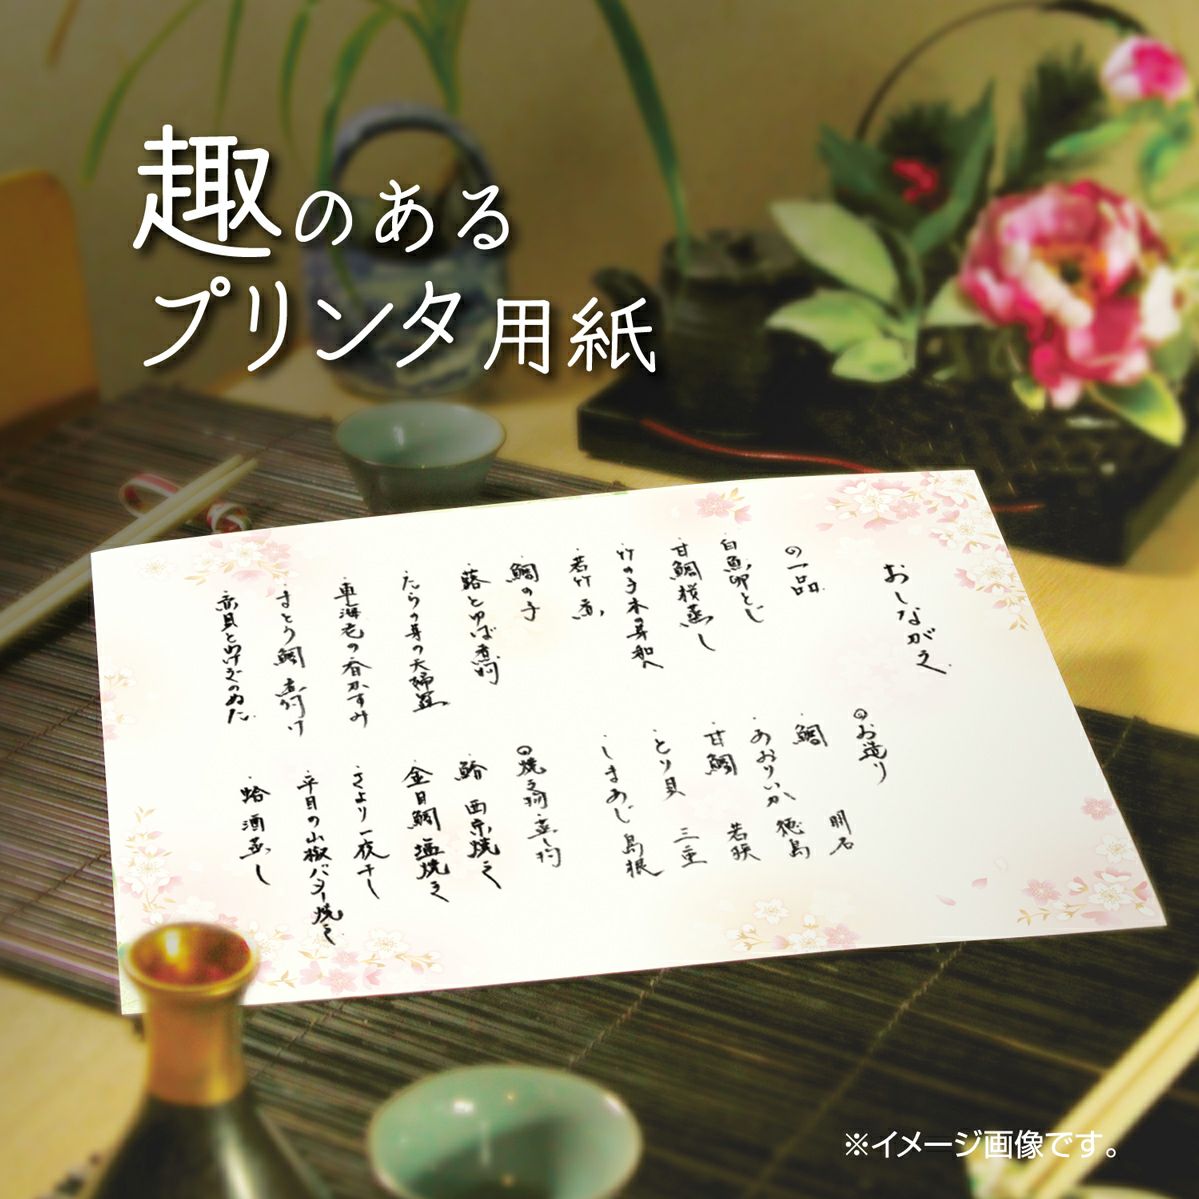 趣のある
プリンタ用紙
おしながき
の一品
白魚卵とじ
甘鯛桜蒸し
竹の子木の芽和へ
若竹煮
鯛の子
蕗とゆば煮物
たらの芽の天婦羅
車海老の香かすみ
まとう鯛煮付け
赤貝とわけぎのぬた
お造り
鯛 明石
あおりいか 徳島
甘鯛 若狭
とり貝 三重
しまあじ 島根
焼き物 蒸し物
西京焼き
金目鯛塩焼き
さより一夜干し
平目の山椒バター焼き
蛤酒蒸し
※イメージ画像です。